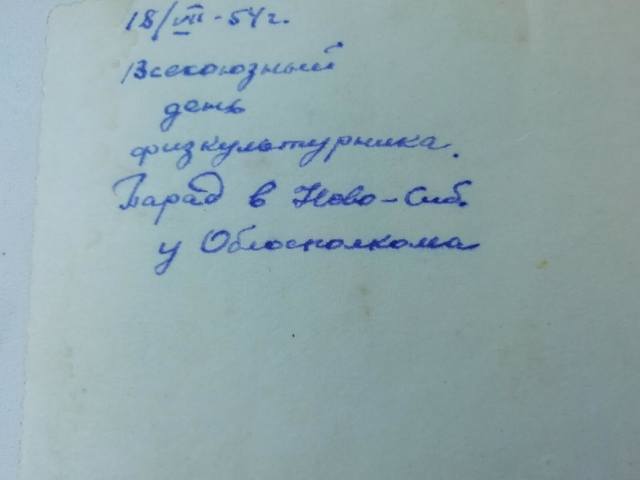 18/VII-54г.
Всесоюзный
день
физкультурника.
Парад в Ново-Сиб.
у Облисполкома